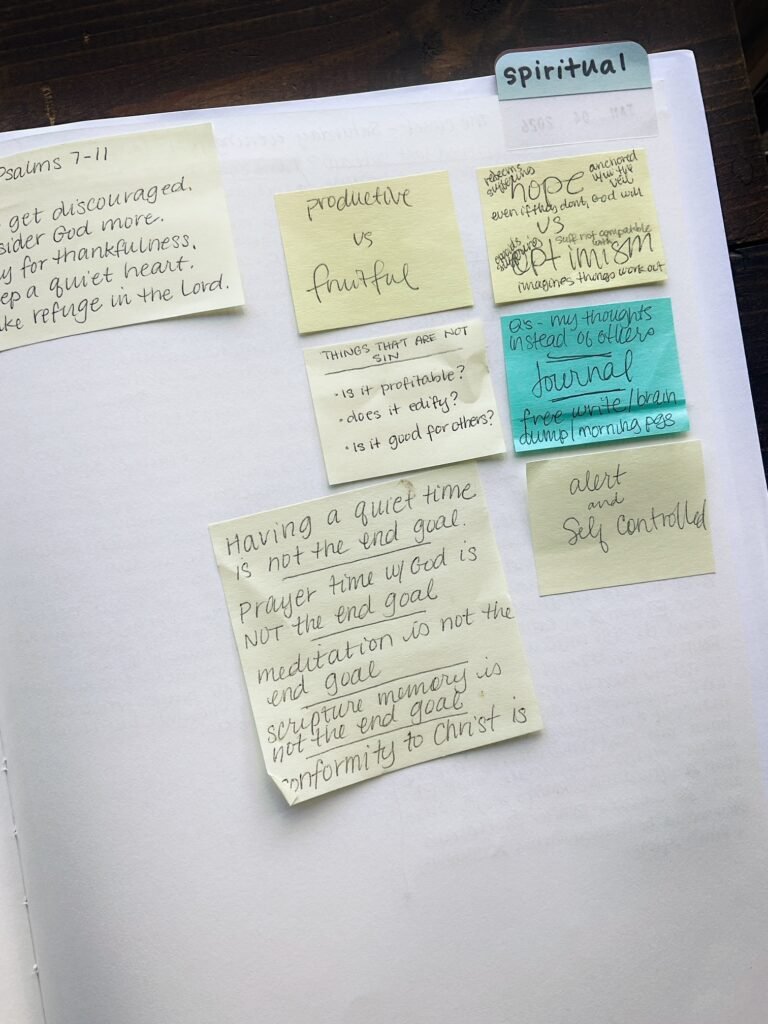 spiritual
JAN 04 2026
Psalms 7-11
get discouraged.
sider God more.
y for thankfulness.
ep a quiet heart.
ke refuge in the Lord.
productive
vs
fruitful
redeems suffering
anchored
the
veil
hope
even if they dont, God will
vs
avoids suffering
suff not compatible
with
optimism
imagines things work out
THINGS THAT ARE NOT
SIN
• Is it profitable?
• does it edify?
• Is it good for others?
Qs - my thoughts
instead of others
Journal
free write/brain
dump/morning pgs
alert
and
self controlled
Having a quiet time
is not the end goal.
Prayer time w/ God is
NOT the end goal
meditation is not the
end goal
scripture memory is
not the end goal
conformity to Christ is